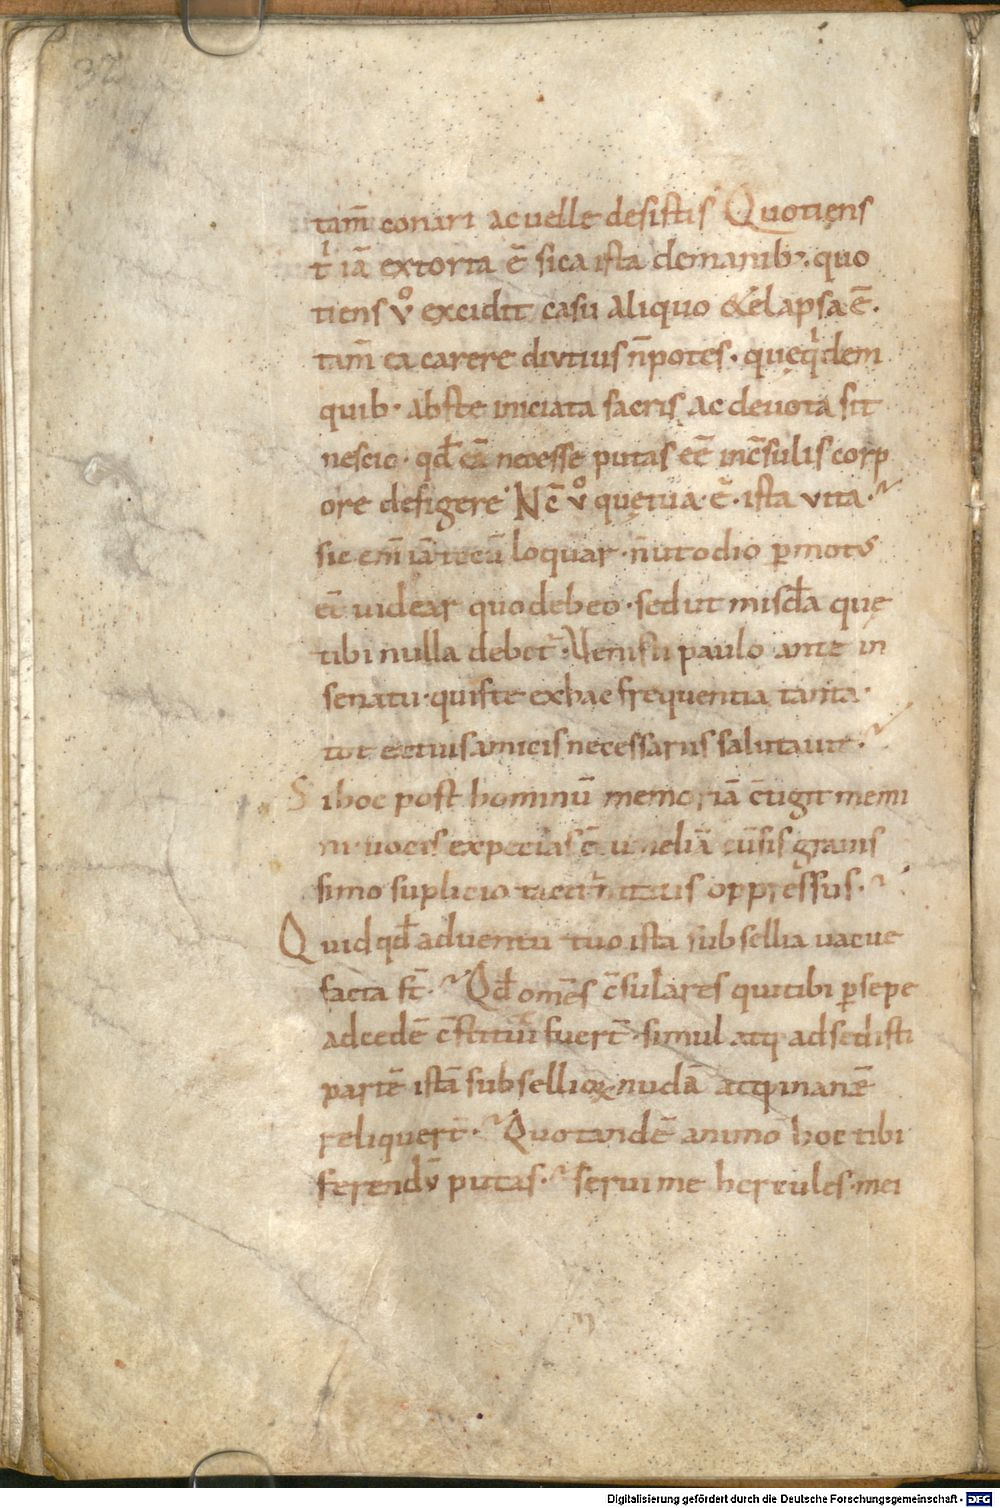 32
tam̄ conari ac uelle desistis Quotiens
t͛ iā extorta ē sica ista demanib;. quo
tiens v̊ excidit casu aliquo & elapsa ē.
tam̄ ea carere divtius n̄potes. quęqͥdem
quib. abste iniciata sacris ac deuota sit
nescio. qđ eā necesse putas eē inc̄sulis corp
ore defigere Nc̄ v̊ quętua. ē. ista vita.
sic em̄ iā tecū loquar. n̄ ut odio p̱motꝰ
eē uidear quo debeo. sed ut misc̄đa quę
tibi nulla debet᷑. Uenisti paulo ante in
senatu. quis te exhac frequentia tanta.
tot ex tuis amicis necessariis salutauit.
Si hoc post hominū memoriā c̄tigit nemi
ni. uocis expectas c̄tumeliā cū sis grauis
simo suplicio taciturnitatis oppressus.
Quid qđ aduentu tuo ista subsellia vacue
facta st̄. Qđ omēs c̄sulares qui tibi p̱sepe
ad cedē c̄stituti fuert̄. simul atq; adsedisti
partē istā subsellioꝝ nudā atq; inanē
reliquert̄. Quo tandē animo hoc tibi
ferendv̄ putas. serui me hercules. mei
Digitalisierung gefördert durch die Deutsche Forschungsgemeinschaft - DFG